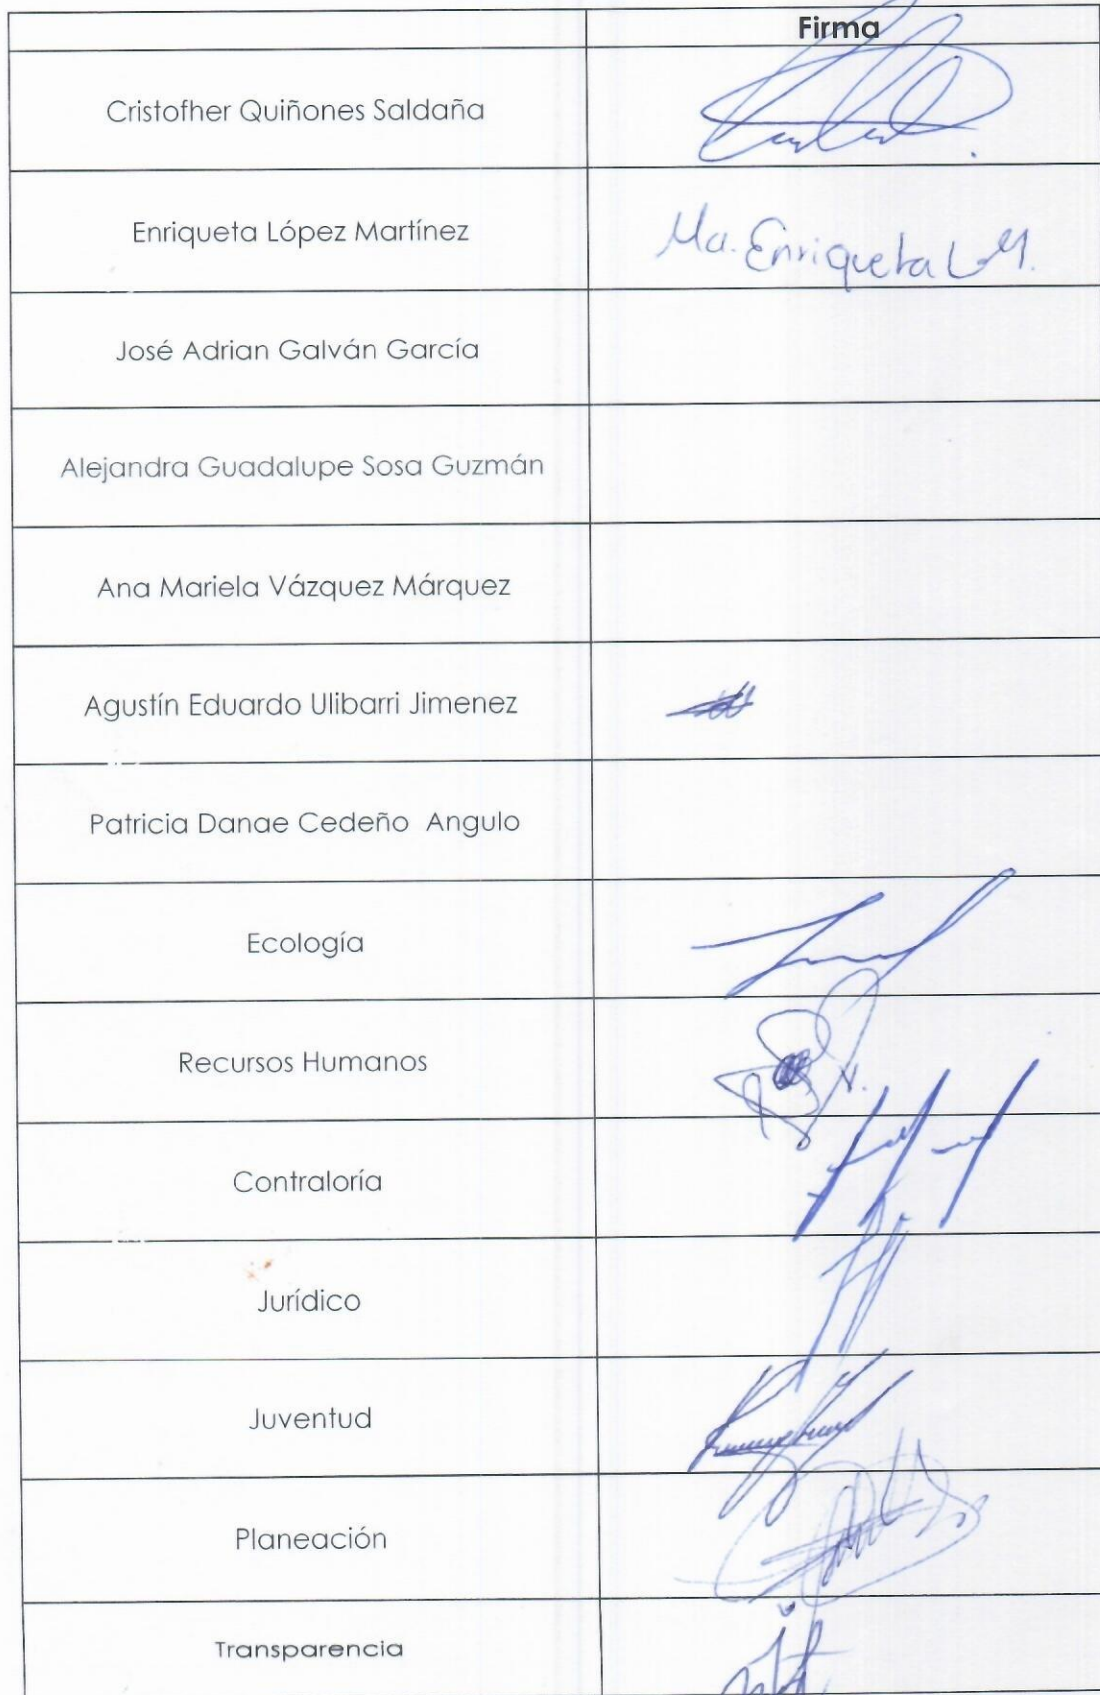 Firma
Cristofher Quiñones Saldaña
Enriqueta López Martínez
Ma. Enriqueta L.M.
José Adrian Galván García
Alejandra Guadalupe Sosa Guzmán
Ana Mariela Vázquez Márquez
Agustín Eduardo Ulibarri Jimenez
Patricia Danae Cedeño Angulo
Ecología
Recursos Humanos
Contraloría
Jurídico
Juventud
Planeación
Transparencia